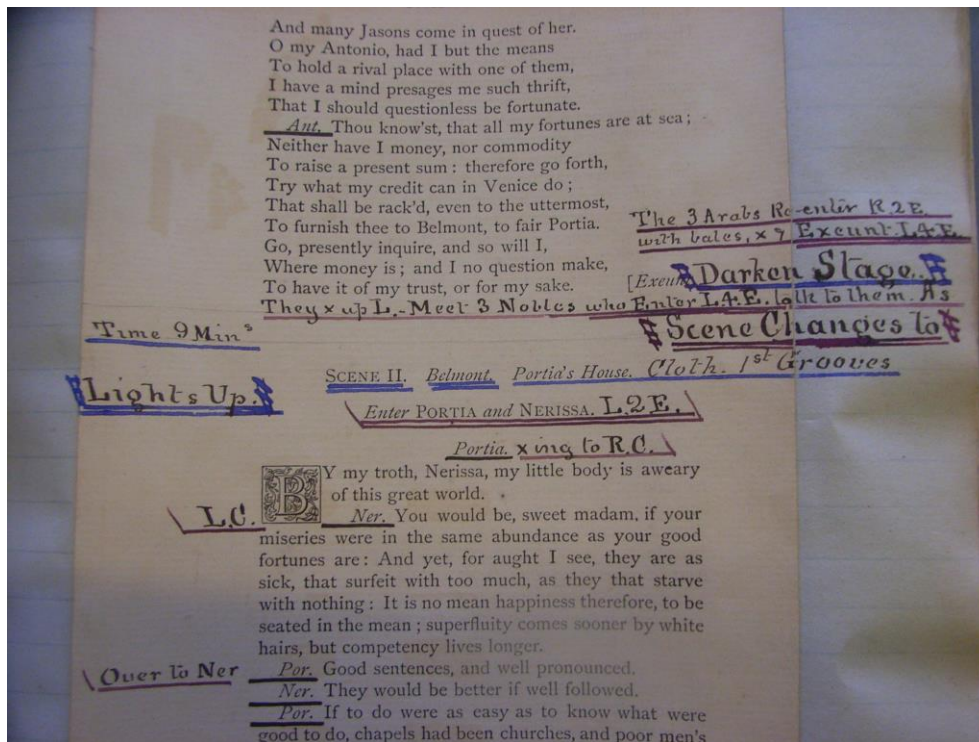 And many Jasons come in quest of her.
O my Antonio, had I but the means
To hold a rival place with one of them,
I have a mind presages me such thrift,
That I should questionless be fortunate.
Ant. Thou know'st, that all my fortunes are at sea;
Neither have I money, nor commodity
To raise a present sum: therefore go forth,
Try what my credit can in Venice do;
That shall be rack'd, even to the uttermost,
To furnish thee to Belmont, to fair Portia.
Go, presently inquire, and so will I,
Where money is; and I no question make,
To have it of my trust, or for my sake.
The 3 Arabs Re-enter R.2E.
with bales, x & Exeunt L4E.
[Exeun Darken Stage.
They x up L.- Meet 3 Nobles who Enter L4E. talk to them. As
Scene Changes to
Time 9 Mins
Lights Up.
SCENE II. Belmont. Portia's House. Cloth. 1st Grooves
Enter PORTIA and NERISSA. L.2E.
Portia. xing to R.C.
BY my troth, Nerissa, my little body is aweary
of this great world.
L.C.
Ner. You would be, sweet madam, if your
miseries were in the same abundance as your good
fortunes are: And yet, for aught I see, they are as
sick, that surfeit with too much, as they that starve
with nothing: It is no mean happiness therefore, to be
seated in the mean; superfluity comes sooner by white
hairs, but competency lives longer.
Over to Ner
Por. Good sentences, and well pronounced.
Ner. They would be better if well followed.
Por. If to do were as easy as to know what were
good to do, chapels had been churches, and poor men's